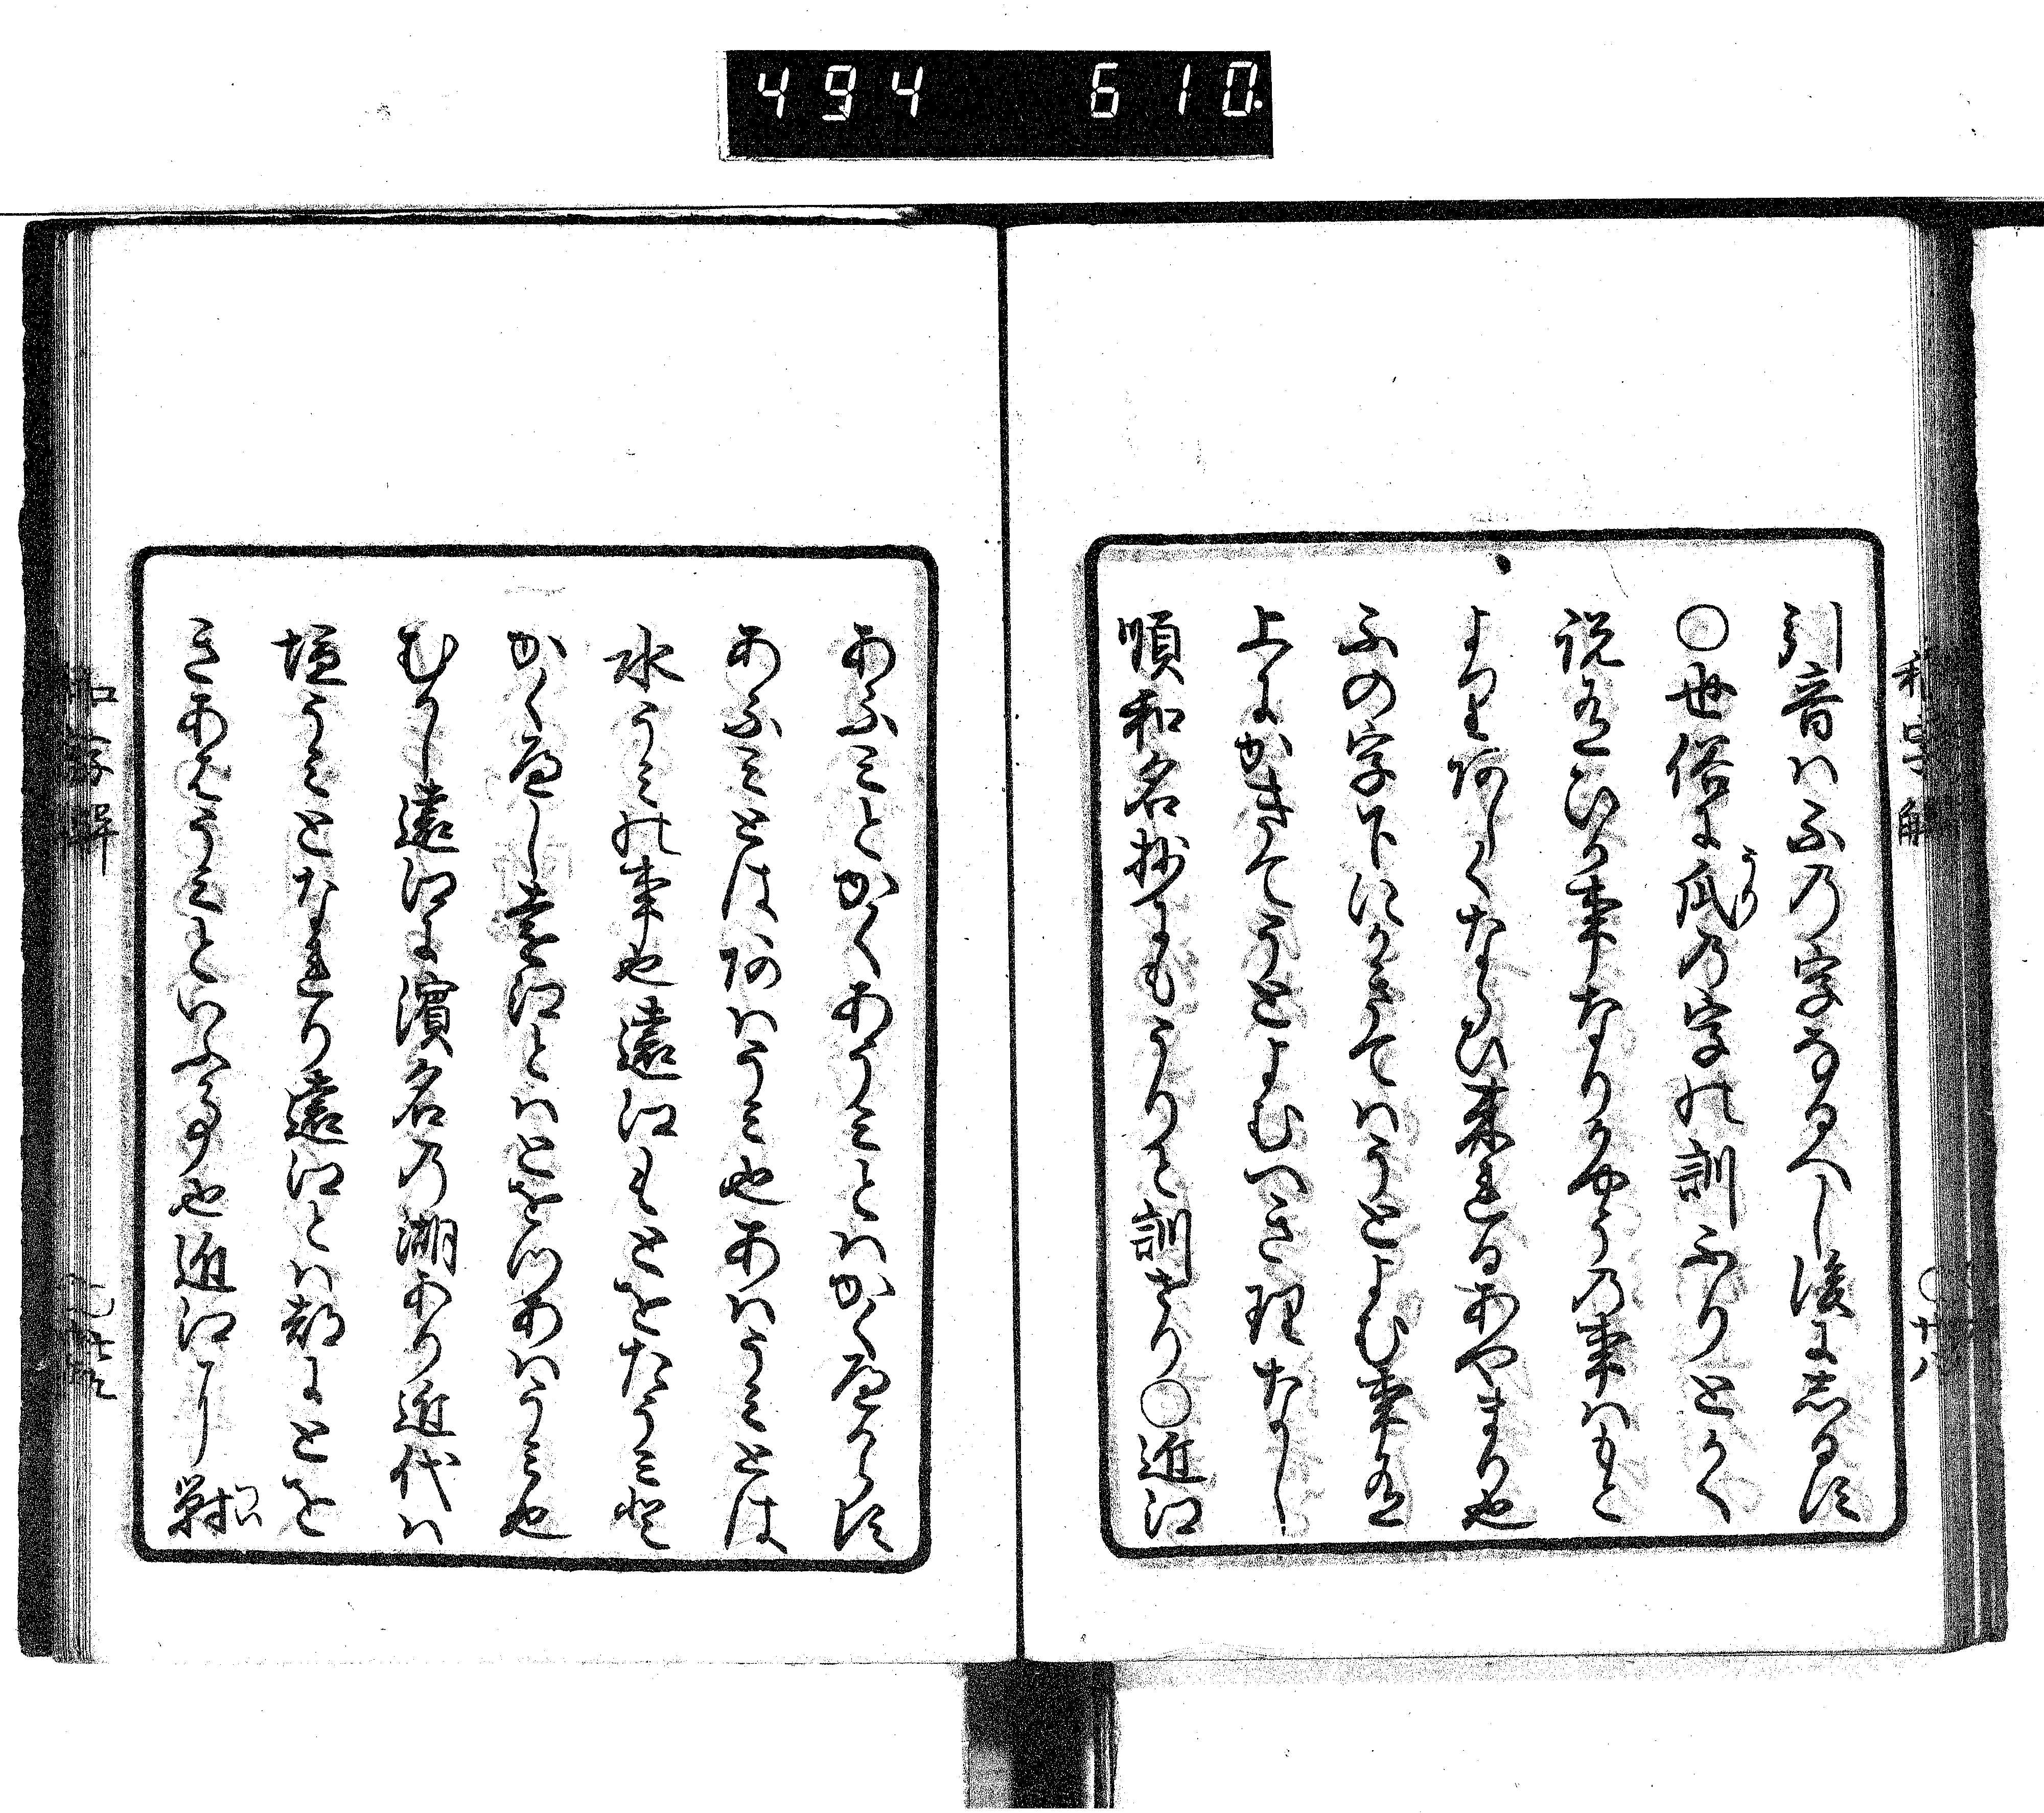 494 610
引音ハふの字なるへし後に志るす
○世俗に瓜の字の訓ふりとかく
うり
説有ひか事なりかやうの事ハもと
よりあしくならひ来れるあやまり也
ふの字下にかきてハうとよむ事有
上にかきてうとよむへき理なし
順和名抄にもうりと訓せり○近江
あふミとかくあうミとハかくへからす
あふミとはあハうミ也あハうミとは
水うミの事也遠江もとをたうミと
かくへし遠江とハとをつあハうミ也
むかし遠江に濱名の湖あり近代ハ
塩うミとなれり遠江とハ都にとを
きあはうミといふ事也近江に對
つい
和字解
○十八